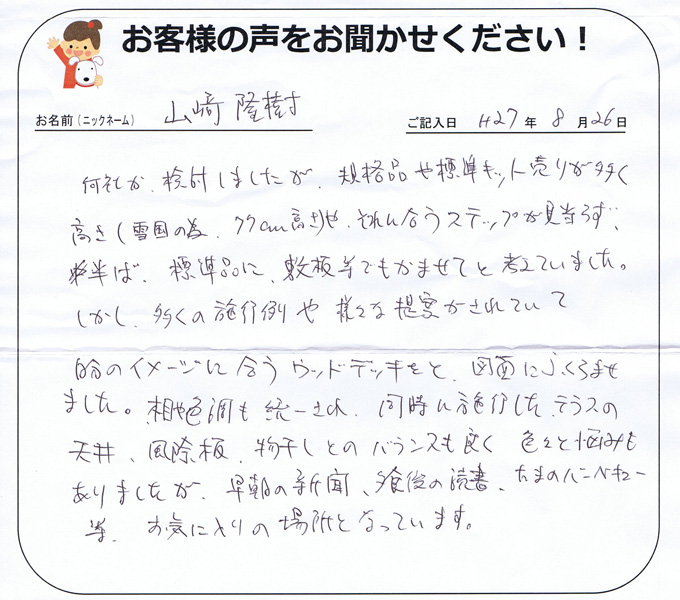 お客様の声をお聞かせください！
お名前（ニックネーム） 山﨑 隆樹
ご記入日 H27 年 8 月 26 日
何社か、検討しましたが、規格品や標準キット売りが多く
高さ（雪国の為、77cm高さ）や、それに合うステップが見当らず、
半ば、標準品に、敷板等でもかませてと考えていました。
しかし、多くの施行例や様々な提案がされていて
自分のイメージに合うウッドデッキをと、図面にふくらませ
ました。相や色調も統一され、同時に施行したテラスの
天井、風除板、物干しとのバランスも良く 色々と悩みも
ありましたが、早朝の新聞、食後の読書、たまのバーベキュー
等、お気に入りの場所となっています。